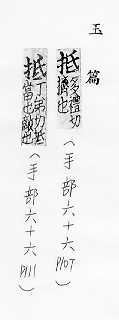 玉篇
抵多禮切擠也(手部六十六P107)
抵丁弟切抵當也敵也(手部六十六P111)